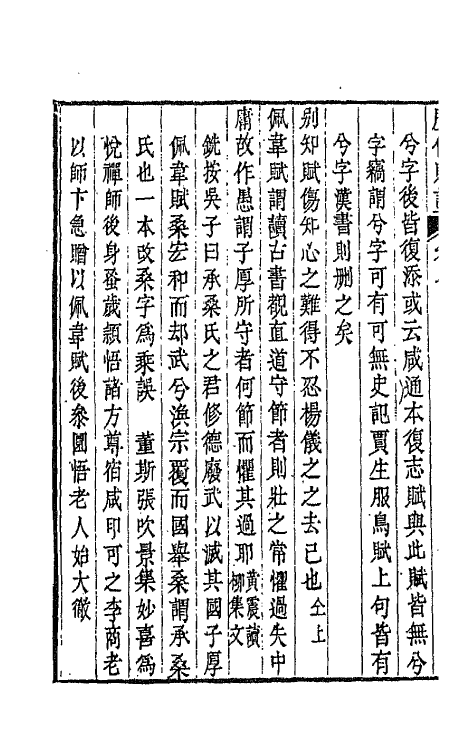 兮字後皆復添或云咸通本復志賦與此賦皆無兮
字稿謂兮字可有可無史記賈生服鳥賦上句皆有
兮字漢書則刪之矣
别知賦傷知心之難得不忍楊儀之之去已也仝上
佩韋賦謂讀古書觀直道守節者則壯之常懼過失中
庸故作愚謂子厚所守者何節而懼其過耶黃震讀
柳集文
銑按吳子曰承桑氏之君修德廢武以滅其國子厚
佩韋賦桑宏和而却武兮渙宗覆而國舉桑謂承桑
氏也一本改桑字為乘誤　董斯張吹景集妙喜為
悅禪師後身蚤歲穎悟諸方尊宿咸印可之李商老
以師卞急贈以佩韋賦後參圓悟老人始大徹